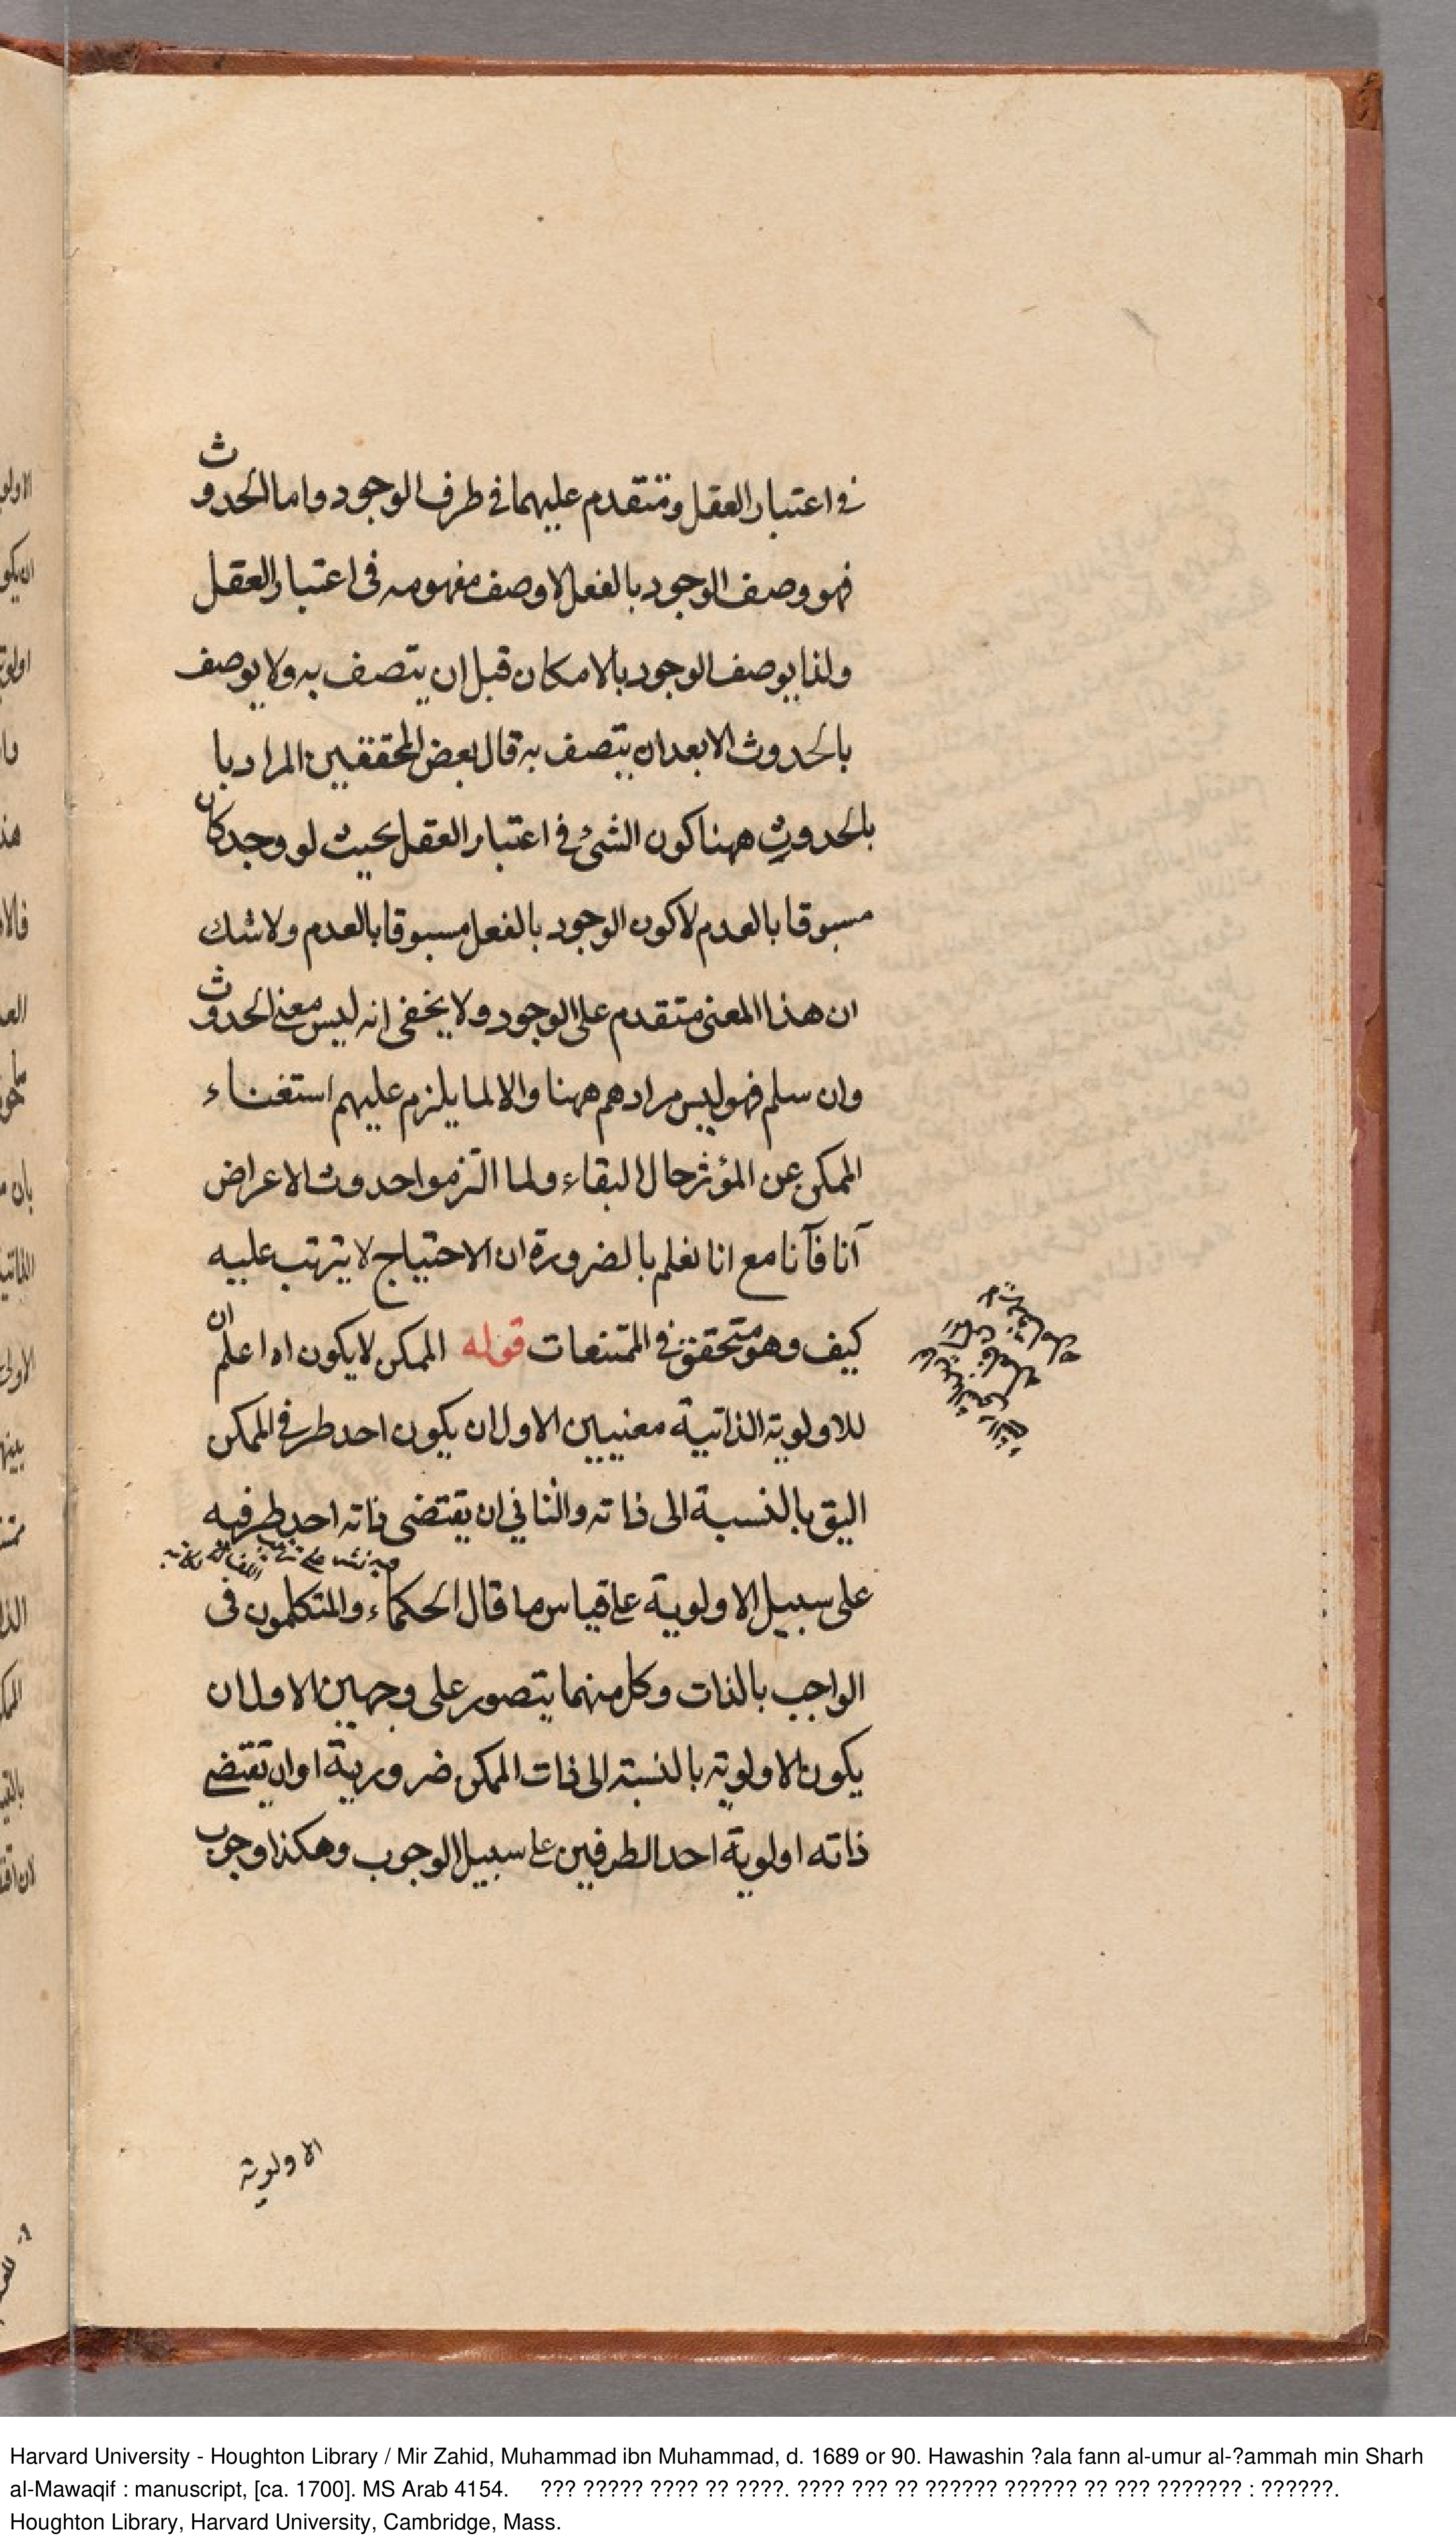 في اعتبار العقل ومتقدم عليهما في طرف الوجود واما الحدوث
فهو وصف الوجود بالفعل لا وصف مفهومه في اعتبار العقل
ولذا يوصف الوجود بالامكان قبل ان يتصف به ولا يوصف
بالحدوث الا بعد ان يتصف به قال بعض المحققين المراد با
بالحدوث ههنا كون الشئ في اعتبار العقل بحيث لو وجد كان
مسبوقا بالعدم لا كون الوجود بالفعل مسبوقا بالعدم ولا شك
ان هذا المعنى متقدم على الوجود ولا يخفى انه ليس معنى الحدوث
وان سلم فهو ليس مرادهم ههنا والا لما يلزم عليهم استغناء
الممكن عن المؤثر حال البقاء ولما التزموا حدوث الاعراض
آنا فآنا مع انا نعلم بالضرورة ان الاحتياج لا يترتب عليه
كيف وهو متحقق في الممتنعات قوله الممكن لا يكون اه اعلم ان
للاولوية الذاتية معنيين الاول ان يكون احد طرفي الممكن
اليق بالنسبة الى ذاته والثاني ان يقتضى ذاته احد طرفيه
على سبيل الاولوية على قياس ما قال الحكماء والمتكلمون في
الواجب بالذات وكل منهما يتصور على وجهين الاول ان
يكون الاولوية بالنسبة الى ذات الممكن ضرورية او ان تقتضي
ذاته اولوية احد الطرفين على سبيل الوجوب وهكذا وجوب
الاولوية
Harvard University - Houghton Library / Mir Zahid, Muhammad ibn Muhammad, d. 1689 or 90. Hawashin ?ala fann al-umur al-?ammah min Sharh
al-Mawaqif : manuscript, [ca. 1700]. MS Arab 4154. ??? ????? ???? ?? ????. ???? ??? ?? ?????? ?????? ?? ??? ??????? : ??????.
Houghton Library, Harvard University, Cambridge, Mass.